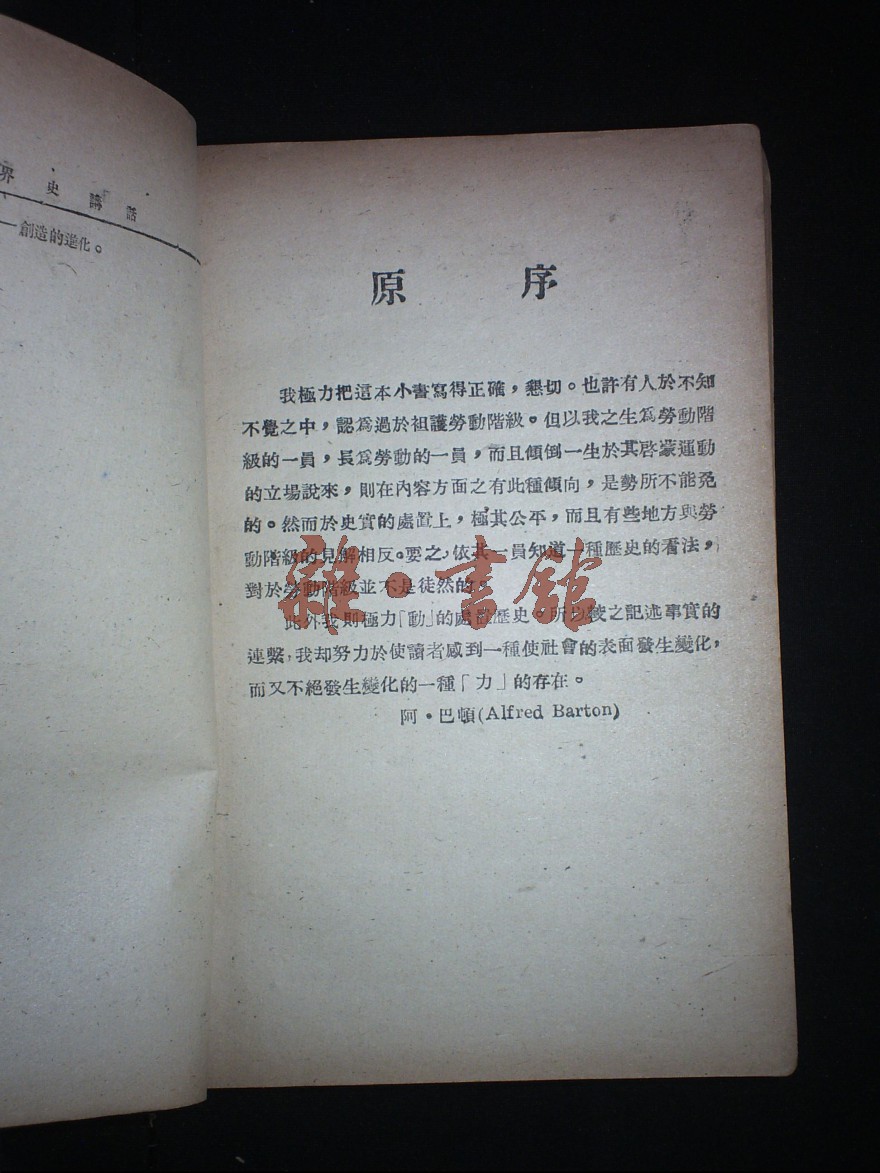 界史講話
—創造的進化。
原序
我極力把這本小書寫得正確，懇切。也許有人於不知
不覺之中，認爲過於袒護勞動階級。但以我之生爲勞動階
級的一員，長爲勞動的一員，而且傾倒一生於其啓蒙運動
的立場說來，則在內容方面之有此種傾向，是勢所不能免
的。然而於史實的處置上，極其公平，而且有些地方與勞
動階級的見解相反。要之，依其一員知道一種歷史的看法，
對於勞動階級並不是徒然的。
此外我則極力「動」的處置歷史。所以較之記述事實的
連繫，我却努力於使讀者感到一種使社會的表面發生變化，
而又不絕發生變化的一種「力」的存在。
阿·巴頓(Alfred Barton)
雜·書館